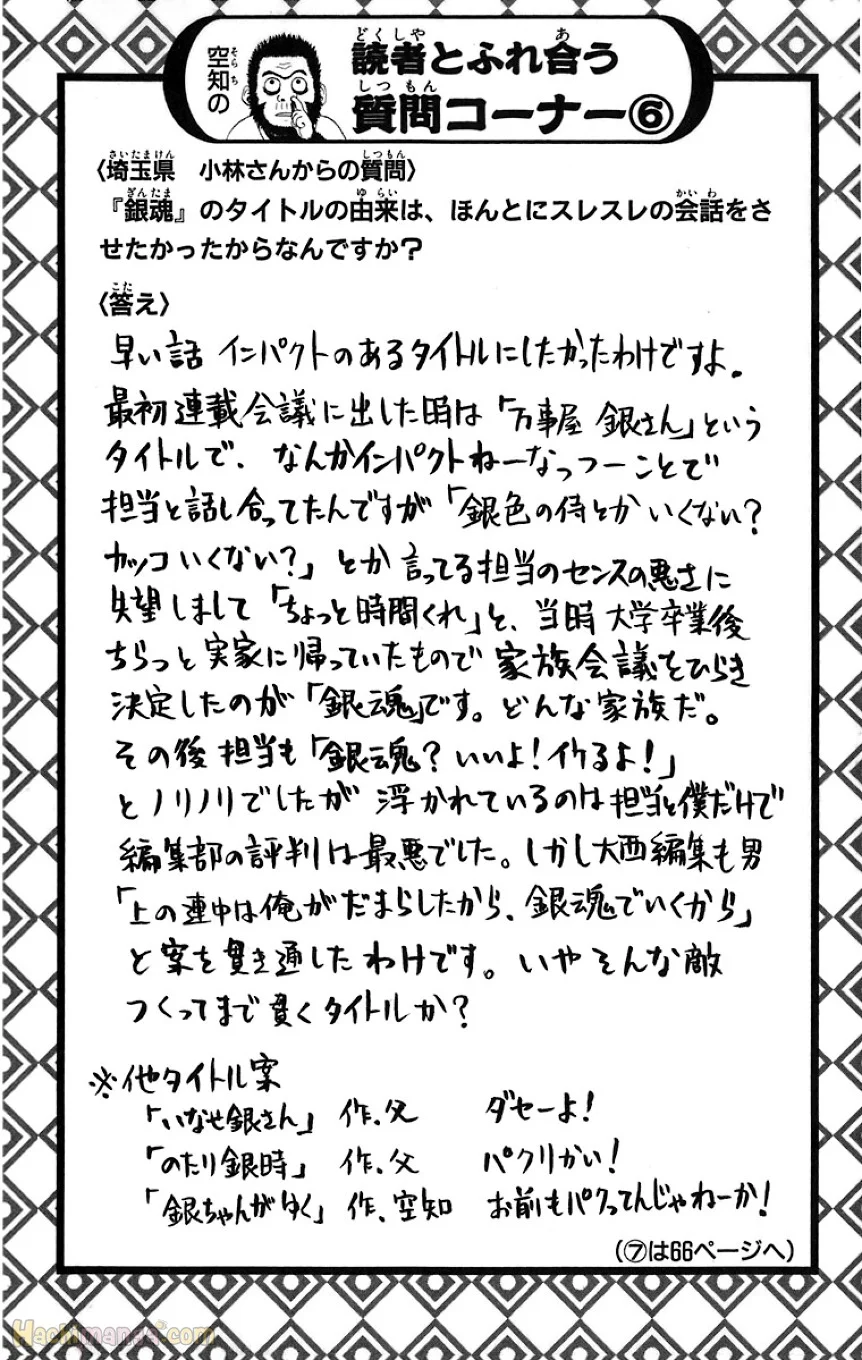 空知の
読者とふれ合う
質問コーナー⑥
〈埼玉県　小林さんからの質問〉
『銀魂』のタイトルの由来は、ほんとにスレスレの会話をさ
せたかったからなんですか？
〈答え〉
早い話 インパクトのあるタイトルにしたかったわけですよ。
最初連載会議に出した時は「万事屋 銀さん」という
タイトルで、なんかインパクトねーなっつーことで
担当と話し合ってたんですが「銀色の侍とか いくない？
カッコいくない？」とか 言ってる担当のセンスの悪さに
失望しまして「ちょっと時間くれ」と、当時 大学卒業後
ちらっと実家に帰っていたもので 家族会議をひらき
決定したのが「銀魂」です。どんな家族だ。
その後 担当も「銀魂？いいよ！イケるよ！」
とノリノリでしたが 浮かれているのは担当と僕だけで
編集部の評判は最悪でした。しかし大西編集も男
「上の連中は俺がだまらしたから、銀魂でいくから」
と案を貫き通したわけです。いや そんな敵
つくってまで貫くタイトルか？
※他タイトル案
「いなせ銀さん」 作、父　ダセーよ！
「のたり銀時」 作、父　パクリかい！
「銀ちゃんがゆく」 作、空知　お前もパクってんじゃねーか！
（⑦は66ページへ）
Hachimanga.com